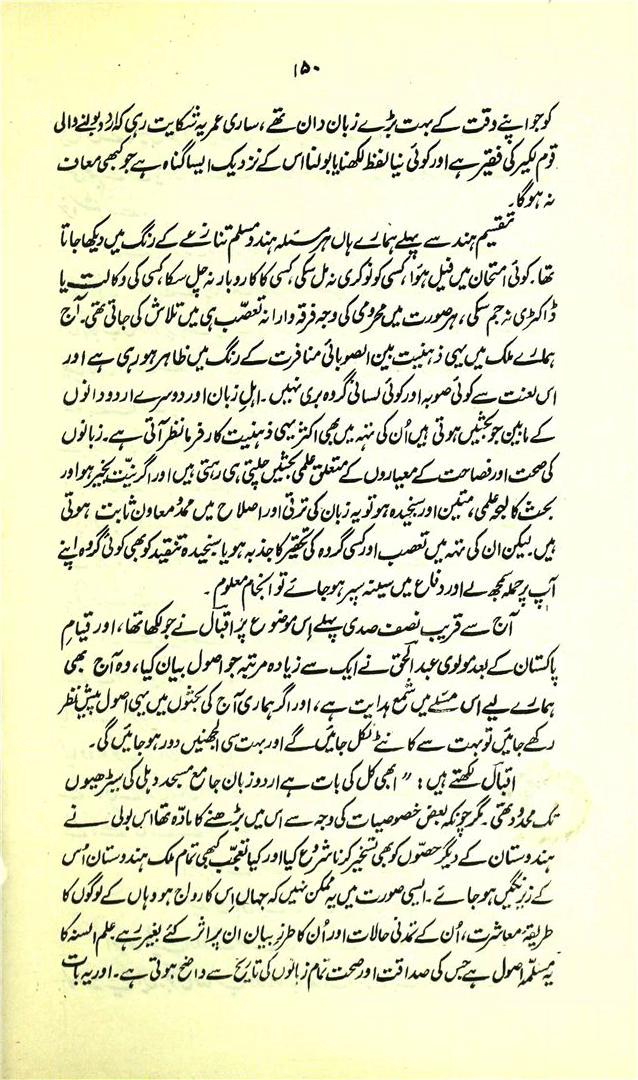 ۱۵۰
کو جو اپنے وقت کے بہت بڑے زبان دان تھے، ساری عمر یہ شکایت رہی کہ اردو بولنے والی
قوم لکیر کی فقیر ہے اور کوئی نیا لفظ لکھنا یا بولنا اس کے نزدیک ایسا گناہ ہے جو کبھی معاف
نہ ہوگا۔
تقسیم ہند سے پہلے ہمارے ہاں ہر مسئلہ ہندو مسلم تنازعے کے رنگ میں دیکھا جاتا
تھا۔ کوئی امتحان میں فیل ہوا، کسی کو نوکری نہ مل سکی، کسی کا کاروبار نہ چل سکا، کسی کی وکالت یا
ڈاکٹری نہ جم سکی، ہر صورت میں محرومی کی وجہ فرقہ وارانہ تعصّب ہی میں تلاش کی جاتی تھی۔ آج
ہمارے ملک میں یہی ذہنیت بین الصوبائی منافرت کے رنگ میں ظاہر ہو رہی ہے اور
اس لعنت سے کوئی صوبہ اور کوئی لسانی گروہ بری نہیں۔ اہلِ زبان اور دوسرے اردو دانوں
کے مابین جو بحثیں ہوتی ہیں اُن کی تہہ میں بھی اکثر یہی ذہنیت کارفرما نظر آتی ہے۔ زبانوں
کی صحت اور فصاحت کے معیاروں کے متعلق علمی بحثیں چلتی ہی رہتی ہیں اور اگر نیّت بخیر ہو اور
بحث کا لہجہ علمی، متین اور سنجیدہ ہو تو یہ زبان کی ترقی اور اصلاح میں ممدو معاون ثابت ہوتی
ہیں لیکن ان کی تہہ میں تعصب اور کسی گروہ کی تحقیر کا جذبہ ہو یا سنجیدہ تنقید کو بھی کوئی گروہ اپنے
آپ پر حملہ سمجھ لے اور دفاع میں سینہ سپر ہو جائے تو انجام معلوم۔
آج سے قریب نصف صدی پہلے اِس موضوع پر اقبال نے جو لکھا تھا، اور قیامِ
پاکستان کے بعد مولوی عبدالحق نے ایک سے زیادہ مرتبہ جو اصول بیان کیا، وہ آج بھی
ہمارے لیے اس مسئلے میں شمع ہدایت ہے، اور اگر ہماری آج کی بحثوں میں یہی اصول پیشِ نظر
رکھے جائیں تو بہت سے کانٹے نکل جائیں گے اور بہت سی الجھنیں دور ہو جائیں گی۔
اقبال لکھتے ہیں: "ابھی کل کی بات ہے اردو زبان جامع مسجد دہلی کی سیڑھیوں
تک محدود تھی۔ مگر چونکہ بعض خصوصیات کی وجہ سے اس میں بڑھنے کا مادّہ تھا اس بولی نے
ہندوستان کے دیگر حصّوں کو بھی تسخیر کرنا شروع کیا اور کیا تعجّب کبھی تمام ملک ہندوستان اُس
کے زیرِ نگیں ہو جائے۔ ایسی صورت میں یہ ممکن نہیں کہ جہاں اِس کا رواج ہو وہاں کے لوگوں کا
طریقۂ معاشرت، اُن کے تمدنی حالات اور اُن کا طرزِ بیان ان پر اثر کئے بغیر رہے علم السنہ کا
یہ مسلّمہ اصول ہے جس کی صداقت اور صحت تمام زبانوں کی تاریخ سے واضح ہوتی ہے۔ اور یہ بات